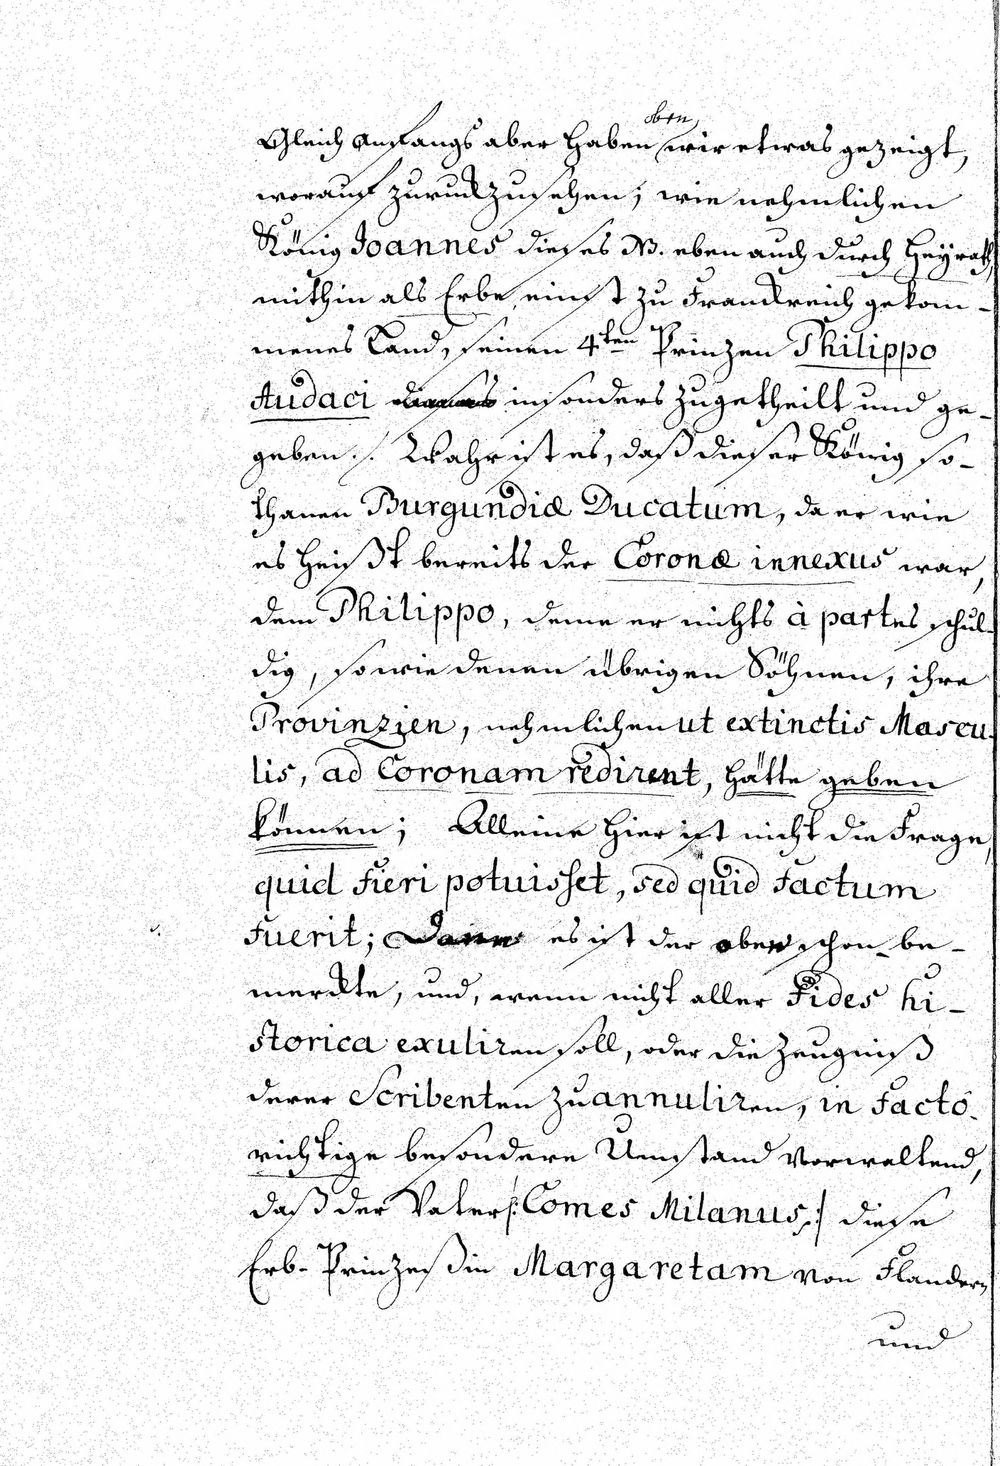 oben
Gleich Anfangs aber haben wir etwas gezeigt,
worauf zuruckzusehen; wie nehmlichen
König Joannes dieses W. eben auch durch Heyrath,
mithin als Erbe einst zu Franckreich gekom-
menes Land, seinen 4ten Prinzen Philippo
Audaci insonders zugetheilt und ge-
geben. Wahr ist es, daß dieser König so-
thanen Burgundiæ Ducatum, da er wie
es heißt bereits der Coronæ innexus war,
dem Philippo, deme er nichts à partes schul-
dig, so wie denen übrigen Söhnen, ihre
Provinzien, nehmlichen ut extinctis Mascu-
lis, ad Coronam redirent, hätte geben
können; Alleine hier ist nicht die Frage,
quid fieri potuisset, sed quid factum
fuerit; Dann es ist der oben schon be-
merckte, und, wenn nicht aller Fides hi-
storica exuliren soll, oder die Zeugniß
derer Scribenten zu annuliren, in facto
richtige besondere Umstand vorwaltend,
daß der Vater /: Comes Milanus :/ diese
Erb-Prinzeßin Margaretam von Flandern
und